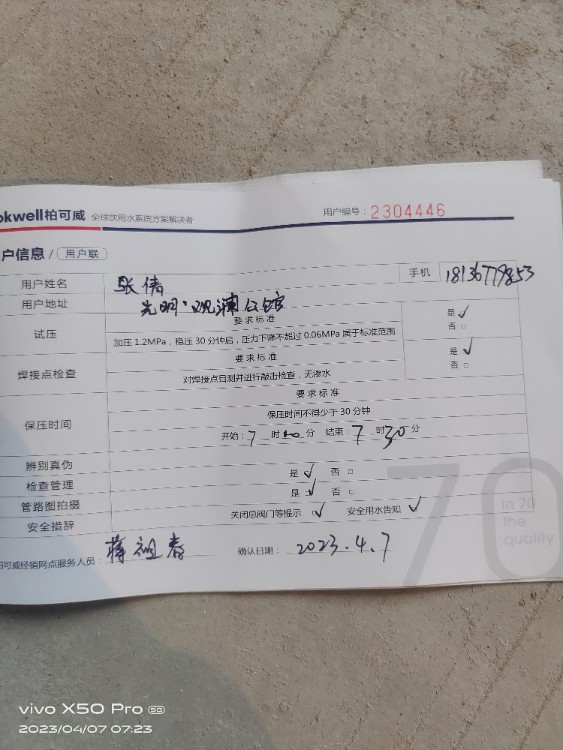 okwell柏可威 全球饮用水系统方案解决者 用户编号：2304446
户信息 / 用户联
用户姓名 张倩 手机 18136779853
用户地址 光明·观澜公馆
试压 要求标准 是 ✓
加压 1.2MPa，稳压 30 分钟后，压力下降不超过 0.06MPa 属于标准范围 否 □
焊接点检查 要求标准 是 ✓
对焊接点目测并进行敲击检查，无渗水 否 □
保压时间 要求标准
保压时间不得少于 30 分钟
开始：7 时 分 结束：7 时 30 分
辨别真伪 是 ✓ 否 □
检查管理 是 ✓ 否
管路图拍摄 关闭总阀门等提示 ✓ 安全用水告知 ✓
安全措辞
柏可威经销网点服务人员：蒋祖春 确认日期：2023.4.7
70
in 70
the
quality
vivo X50 Pro 5G
2023/04/07 07:23